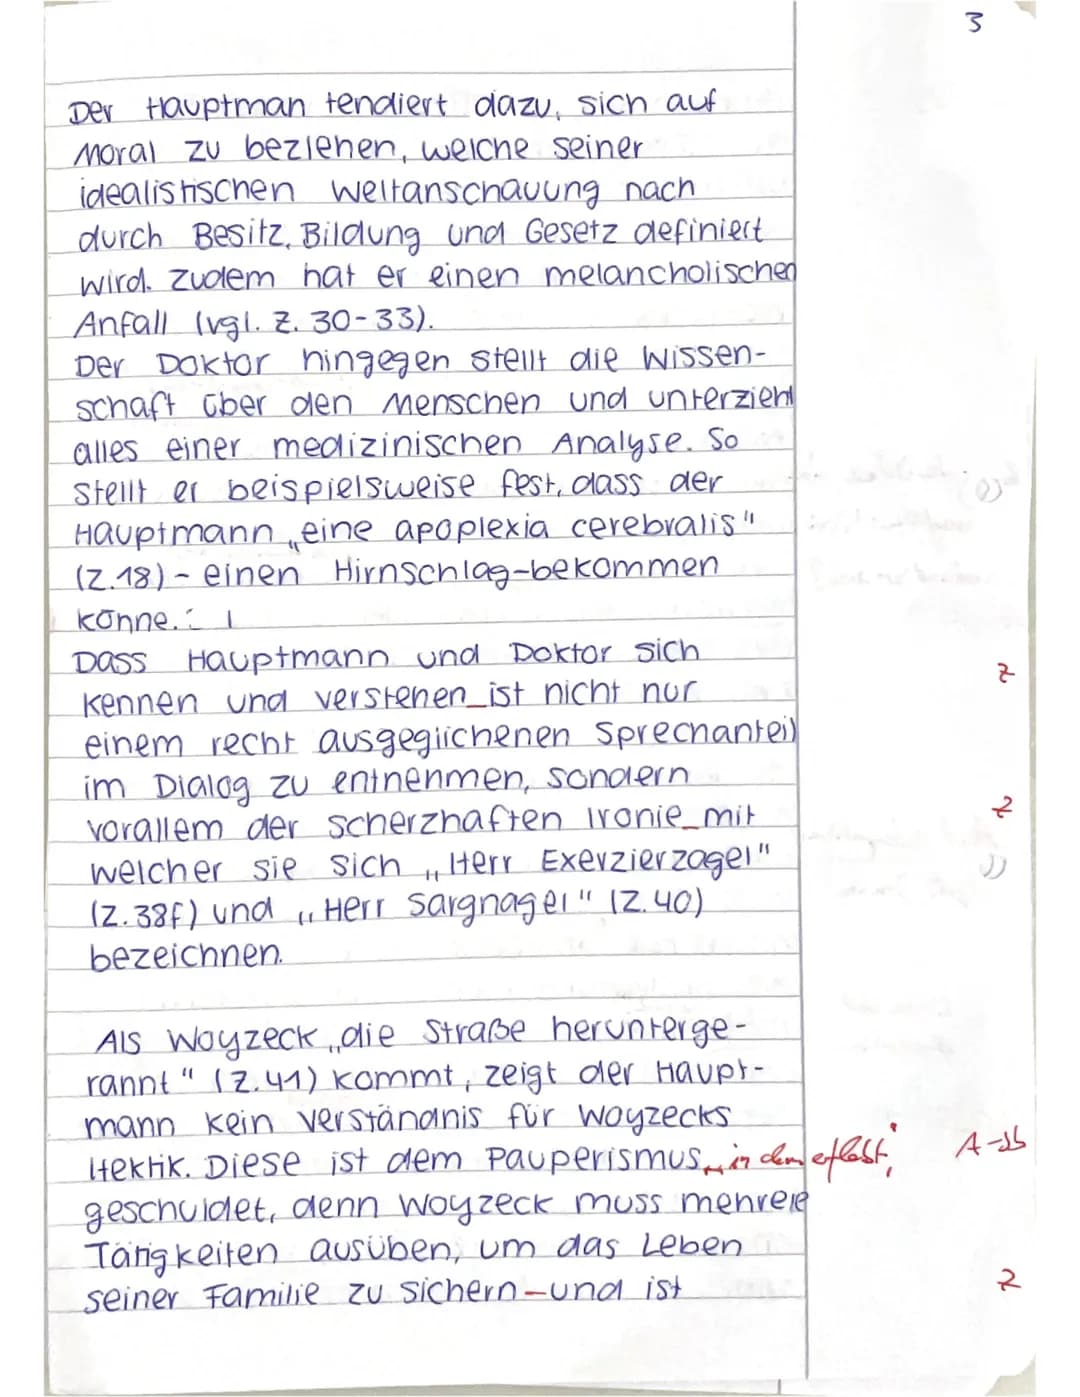 3
Der Hauptman tendiert dazu, sich auf
Moral zu beziehen, welche seiner
idealistischen Weltanschauung nach
durch Besitz, Bildung und Gesetz definiert
wird. Zudem hat er einen melancholischen
Anfall (vgl. Z. 30-33).
Der Doktor hingegen stellt die Wissen-
schaft über den Menschen und unterzieht
alles einer medizinischen Analyse. So
stellt er beispielsweise fest, dass der
Hauptmann „eine apoplexia cerebralis"
(Z.18) - einen Hirnschlag-bekommen
könne.
Dass Hauptmann und Doktor sich
kennen und verstehen ist nicht nur Z
einem recht ausgeglichenen Sprechanteil
im Dialog zu entnehmen, sondern
vorallem der scherzhaften Ironie mit Z
welcher sie sich „Herr Exerzierzagel"
(Z.38f) und „Herr Sargnagel" (Z.40)
bezeichnen.
Als Woyzeck „die Straße herunterge-
rannt" (Z.41) kommt, zeigt der Haupt-
mann kein Verständnis für Woyzecks
Hektik. Diese ist dem Pauperismus, in dem er lebt, A
geschuldet, denn Woyzeck muss mehrere
Tätigkeiten ausüben, um das Leben
seiner Familie zu sichern-und ist Z